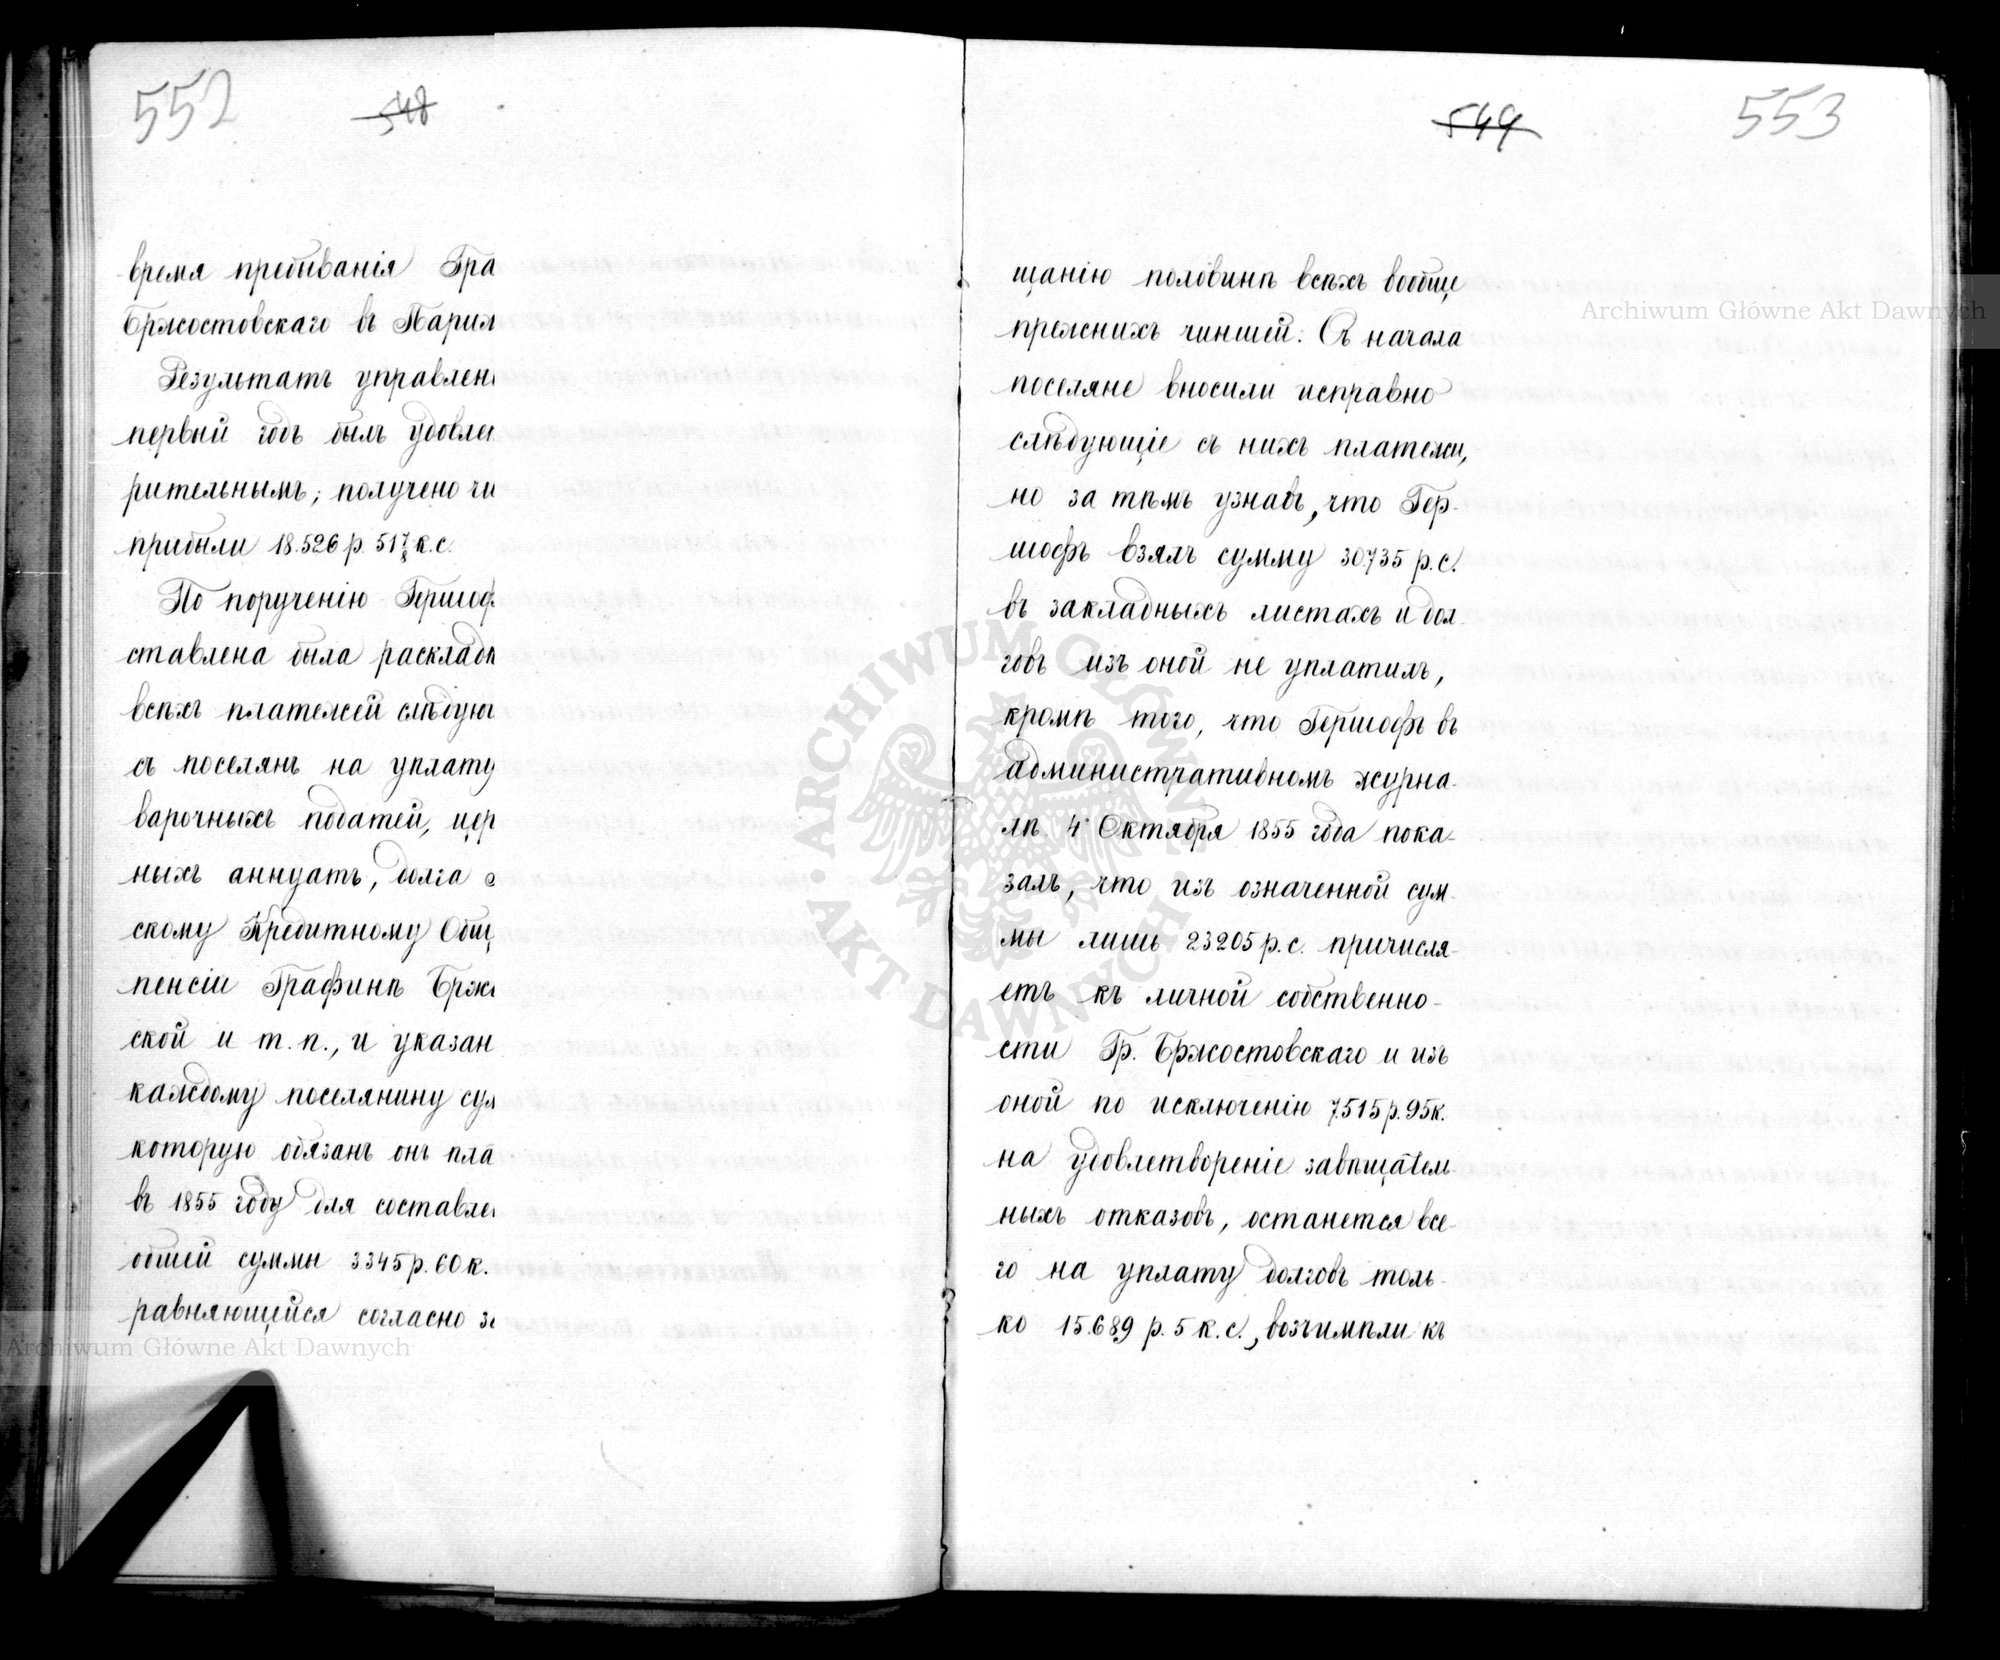 552
548
время пребыванія Гра
Бржостовскаго въ Париж
Результатъ управлен
первый годъ былъ удовле
рительнымъ; получено чи
прибыли 18.526 р. 51⅞ к.с.
По порученію Гершоф
ставлена была раскладк
всѣхъ платежей слѣдую
съ поселянъ на уплату
варочныхъ податей, цер
ныхъ аннуатъ, долга
скому Кредитному Общ
пенсіи Графинѣ Брж
ской и т. п., и указан
каждому поселянину сум
которую обязанъ онъ пла
въ 1855 году для составле
общей суммы 3345 р. 60 к.
равняющейся согласно за
549
553
щанію половинѣ всѣхъ вообще
прежнихъ чиншей: Съ начала
поселяне вносили исправно
слѣдующіе съ нихъ платежи,
но за тѣмъ узнавъ, что Гер-
шофъ взялъ сумму 30735 р.с.
въ закладныхъ листахъ и дол-
говъ изъ оной не уплатилъ,
кромѣ того, что Гершофъ въ
административномъ журна-
лѣ 4 Октября 1855 года пока-
залъ, что изъ означенной сум-
мы лишь 23205 р.с. причисля-
етъ къ личной собственно-
сти Гр. Бржостовскаго и изъ
оной по исключенію 7515 р. 95 к.
на удовлетвореніе завѣщатель-
ныхъ отказовъ, останется все-
го на уплату долговъ толь-
ко 15.689 р. 5 к. с., возъимѣли къ
Archiwum Główne Akt Dawnych
Archiwum Główne Akt Dawnych
ARCHIWUM GŁÓWNE
AKT DAWNYCH